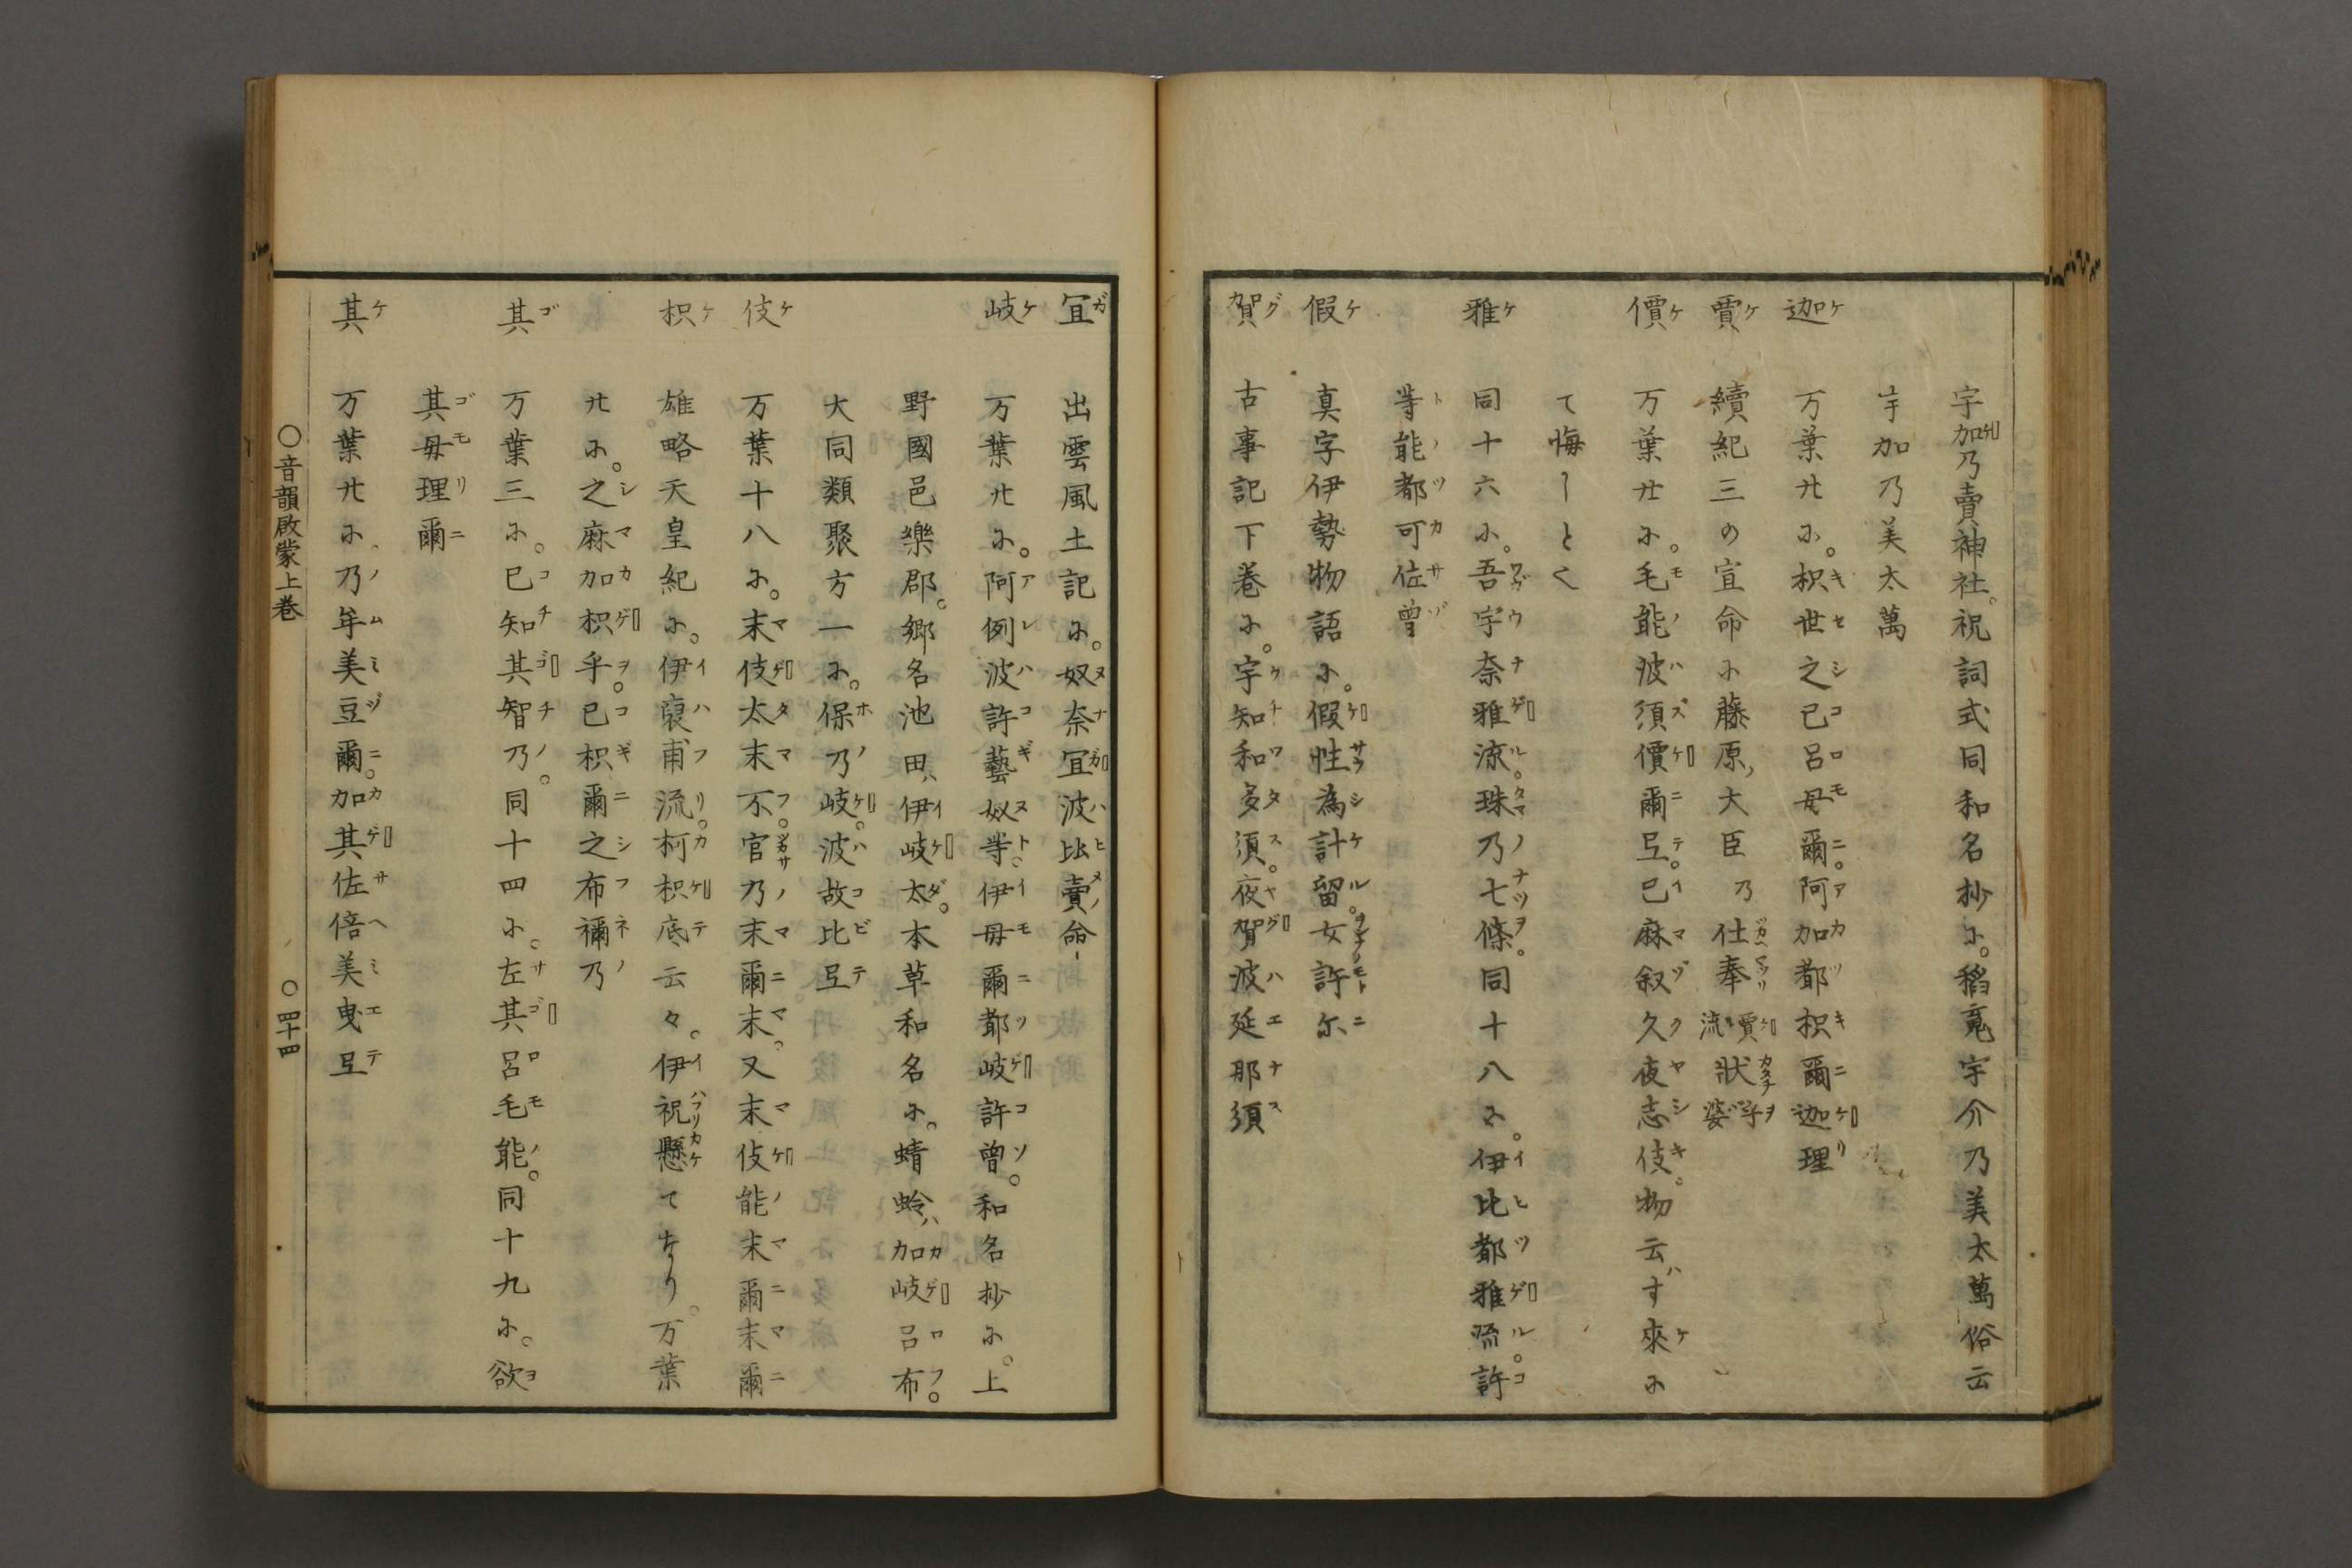 宇加乃賣神社。祝詞式同和名抄尓。稻䰟宇介乃美太萬俗云
宇加乃美太萬
迦ケ 万葉廿尓。枳世之已呂母爾。阿加都枳爾迦理
賈ケ 續紀三の宣命尓藤原ノ大臣乃仕奉流賈狀婆字
價ケ 万葉廿尓。毛能波須價爾弖。已麻叙久夜志伎。物云ハず來ケに
て悔しとく
雅ケ 同十六尓。吾宇奈雅流。珠乃七條。同十八尓。伊比都雅流。許
等能都可佐曾
假ケ 真字伊勢物語尓。假性為計留。女許尓
賀グ 古事記下巻尓。宇知和多須。夜賀波延那須
宜ガ 出雲風土記尓。奴奈宜波比賣命
岐ケ 万葉廿尓。阿例波許藝奴等。伊母爾都岐許曾。和名抄尓。上
野國邑樂郡。郷名池田ハ伊岐太。本草和名尓。蜻蛉ハ加岐呂布。
大同類聚方一尓。保乃岐。波故比弖
伎ケ 万葉十八尓。末伎太末不。官乃末爾末。又末伎能末爾末爾
枳ケ 雄略天皇紀尓。伊裒甫流。柯枳底云々。伊祝懸てなり。万葉
廿尓。之麻加枳乎。已枳爾之布禰乃
其ゴ 万葉三尓。已知其智乃。同十四尓。左其呂毛能。同十九尓。欲
其毋理爾
其ケ 万葉廿尓、乃牟美豆爾。加其佐倍美曳弖
〇音韻啟蒙上巻 〇四十四